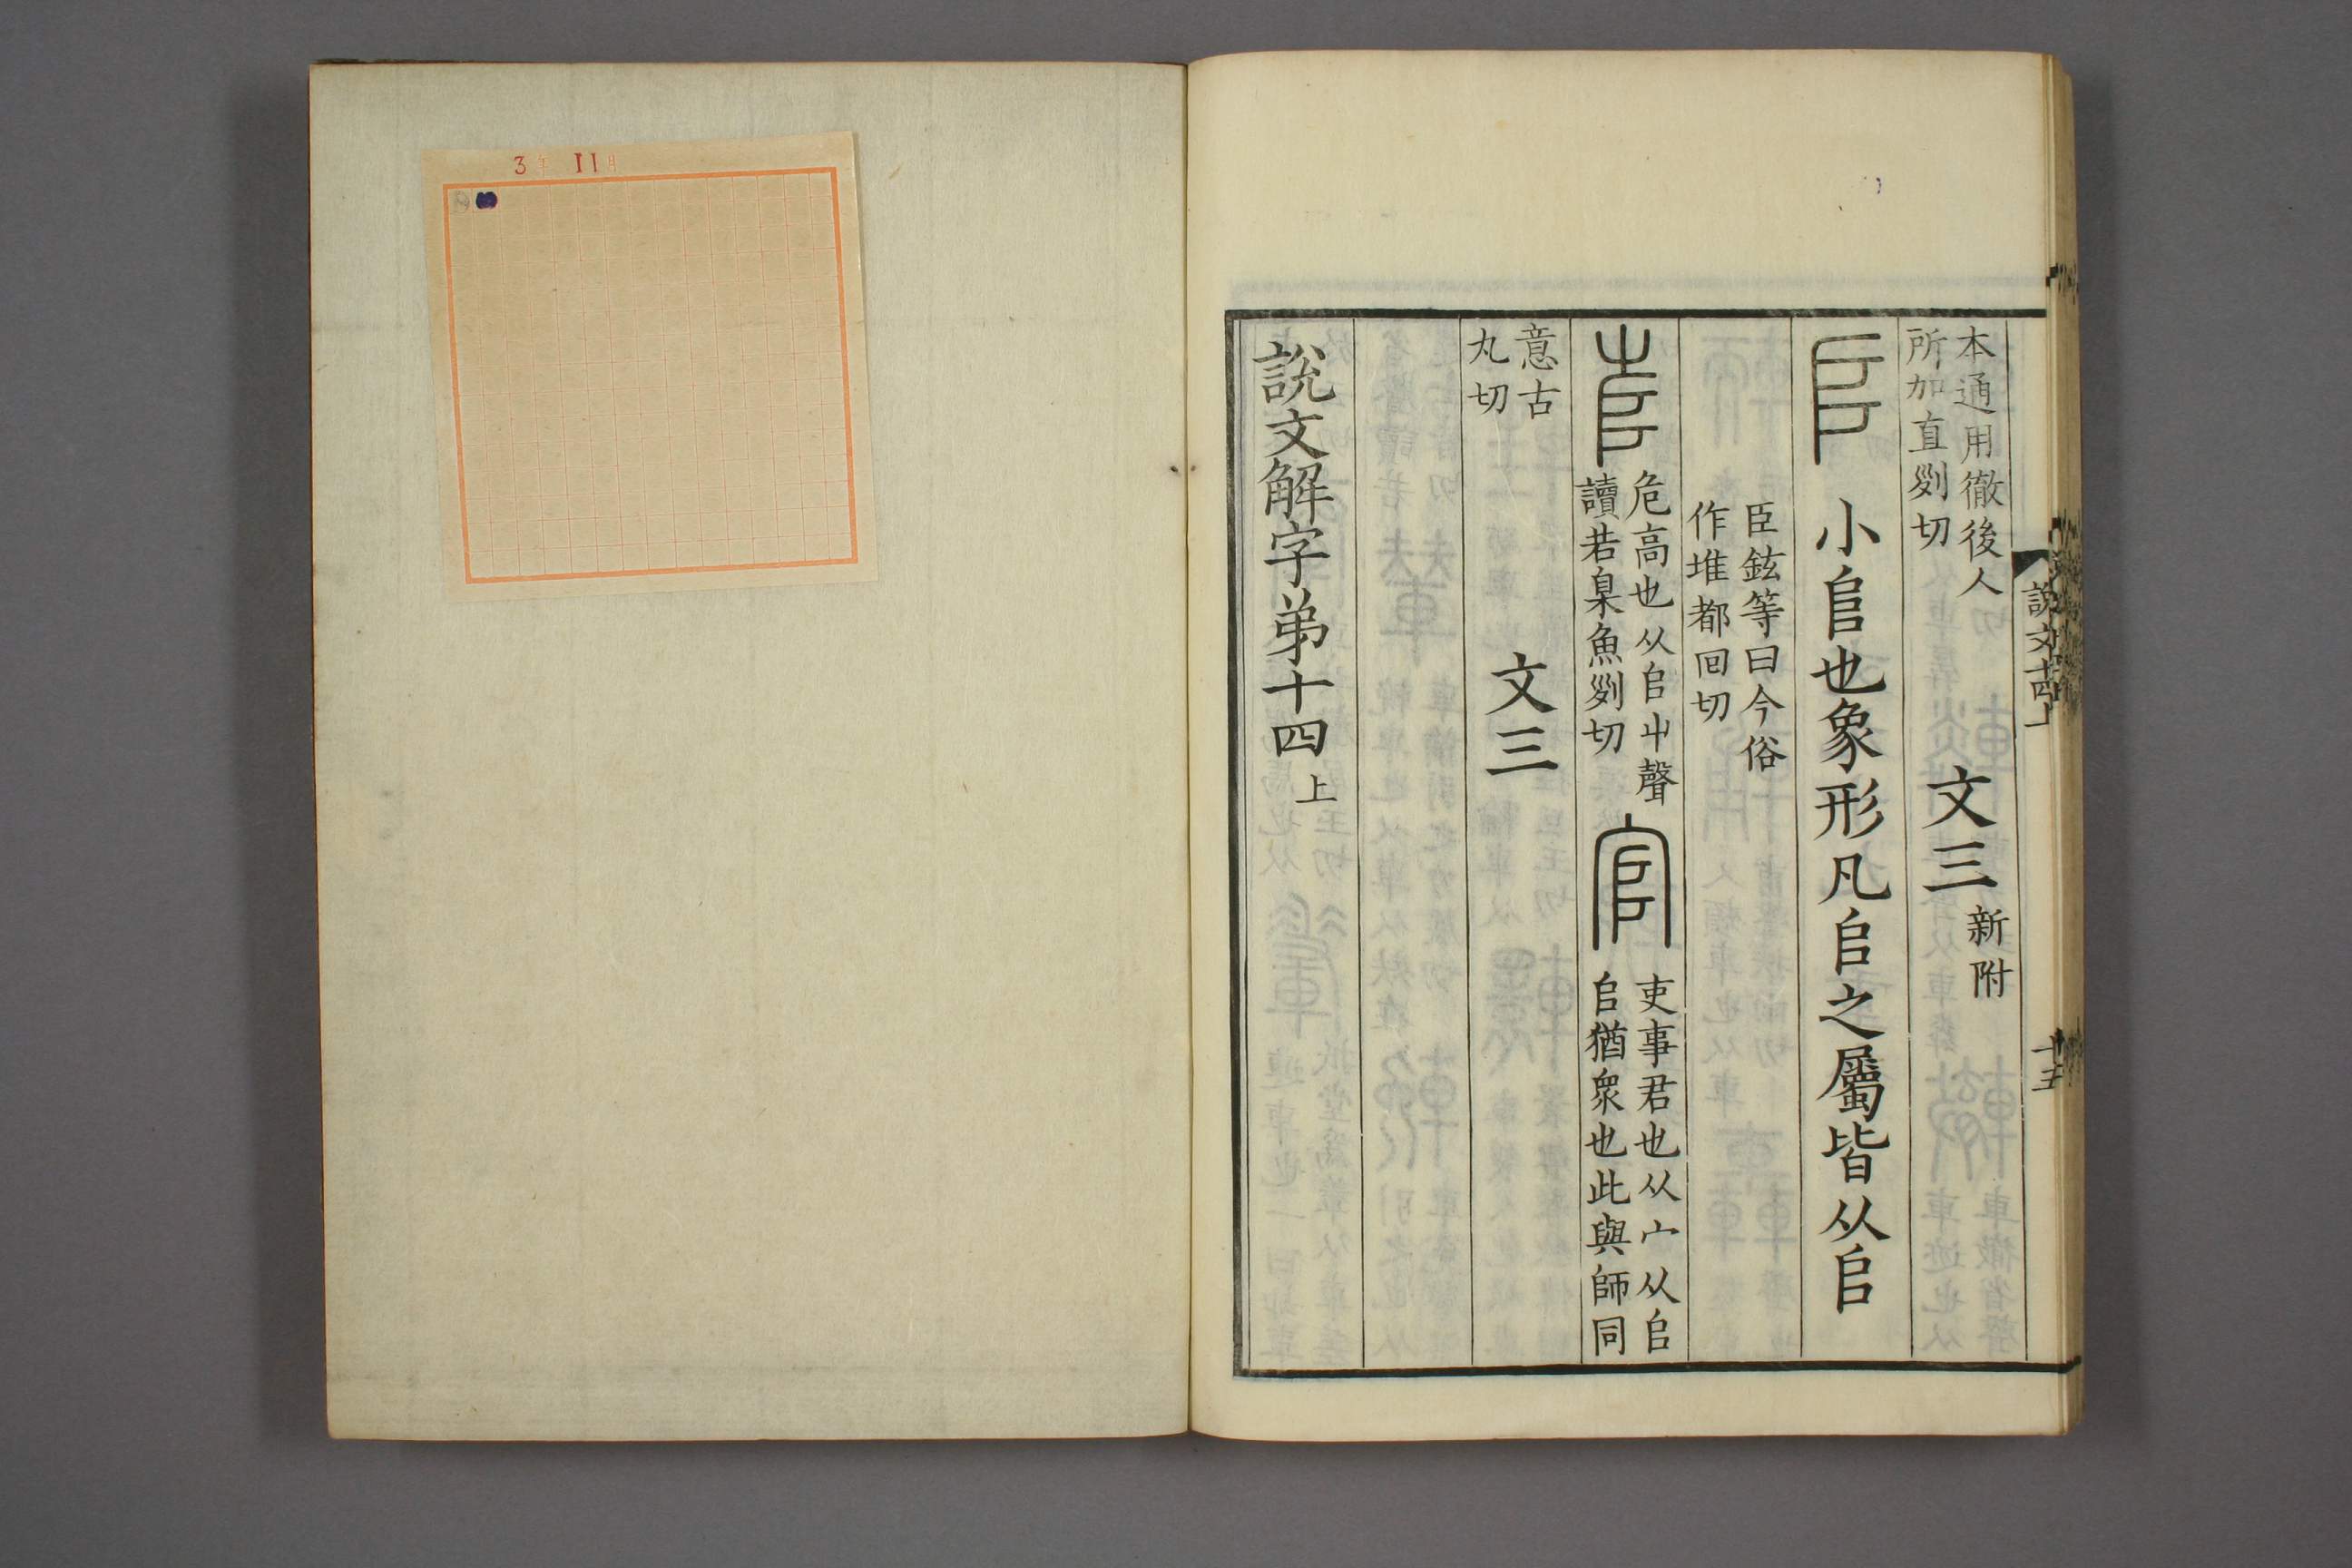 說文十四上
十五
本通用徹後人
所加直𠛱切
文三
新附
𠂤
小𠂤也象形凡𠂤之屬皆从𠂤
臣鉉等曰今俗
作堆都回切
𡴎
危高也从𠂤屮聲
讀若臬魚𠛱切
官
吏事君也从宀从𠂤
𠂤猶眾也此與師同
意古
丸切
文三
說文解字弟十四上
3年 11月